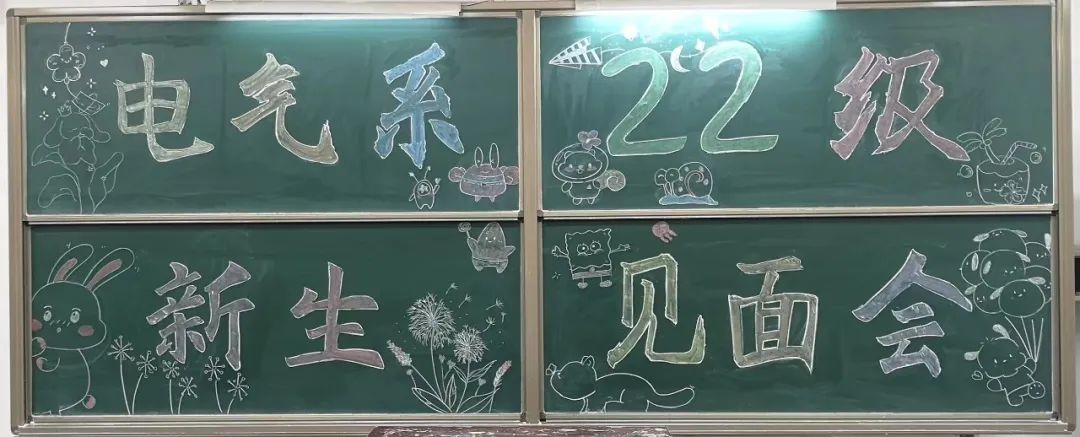 电气系22级
新生见面会